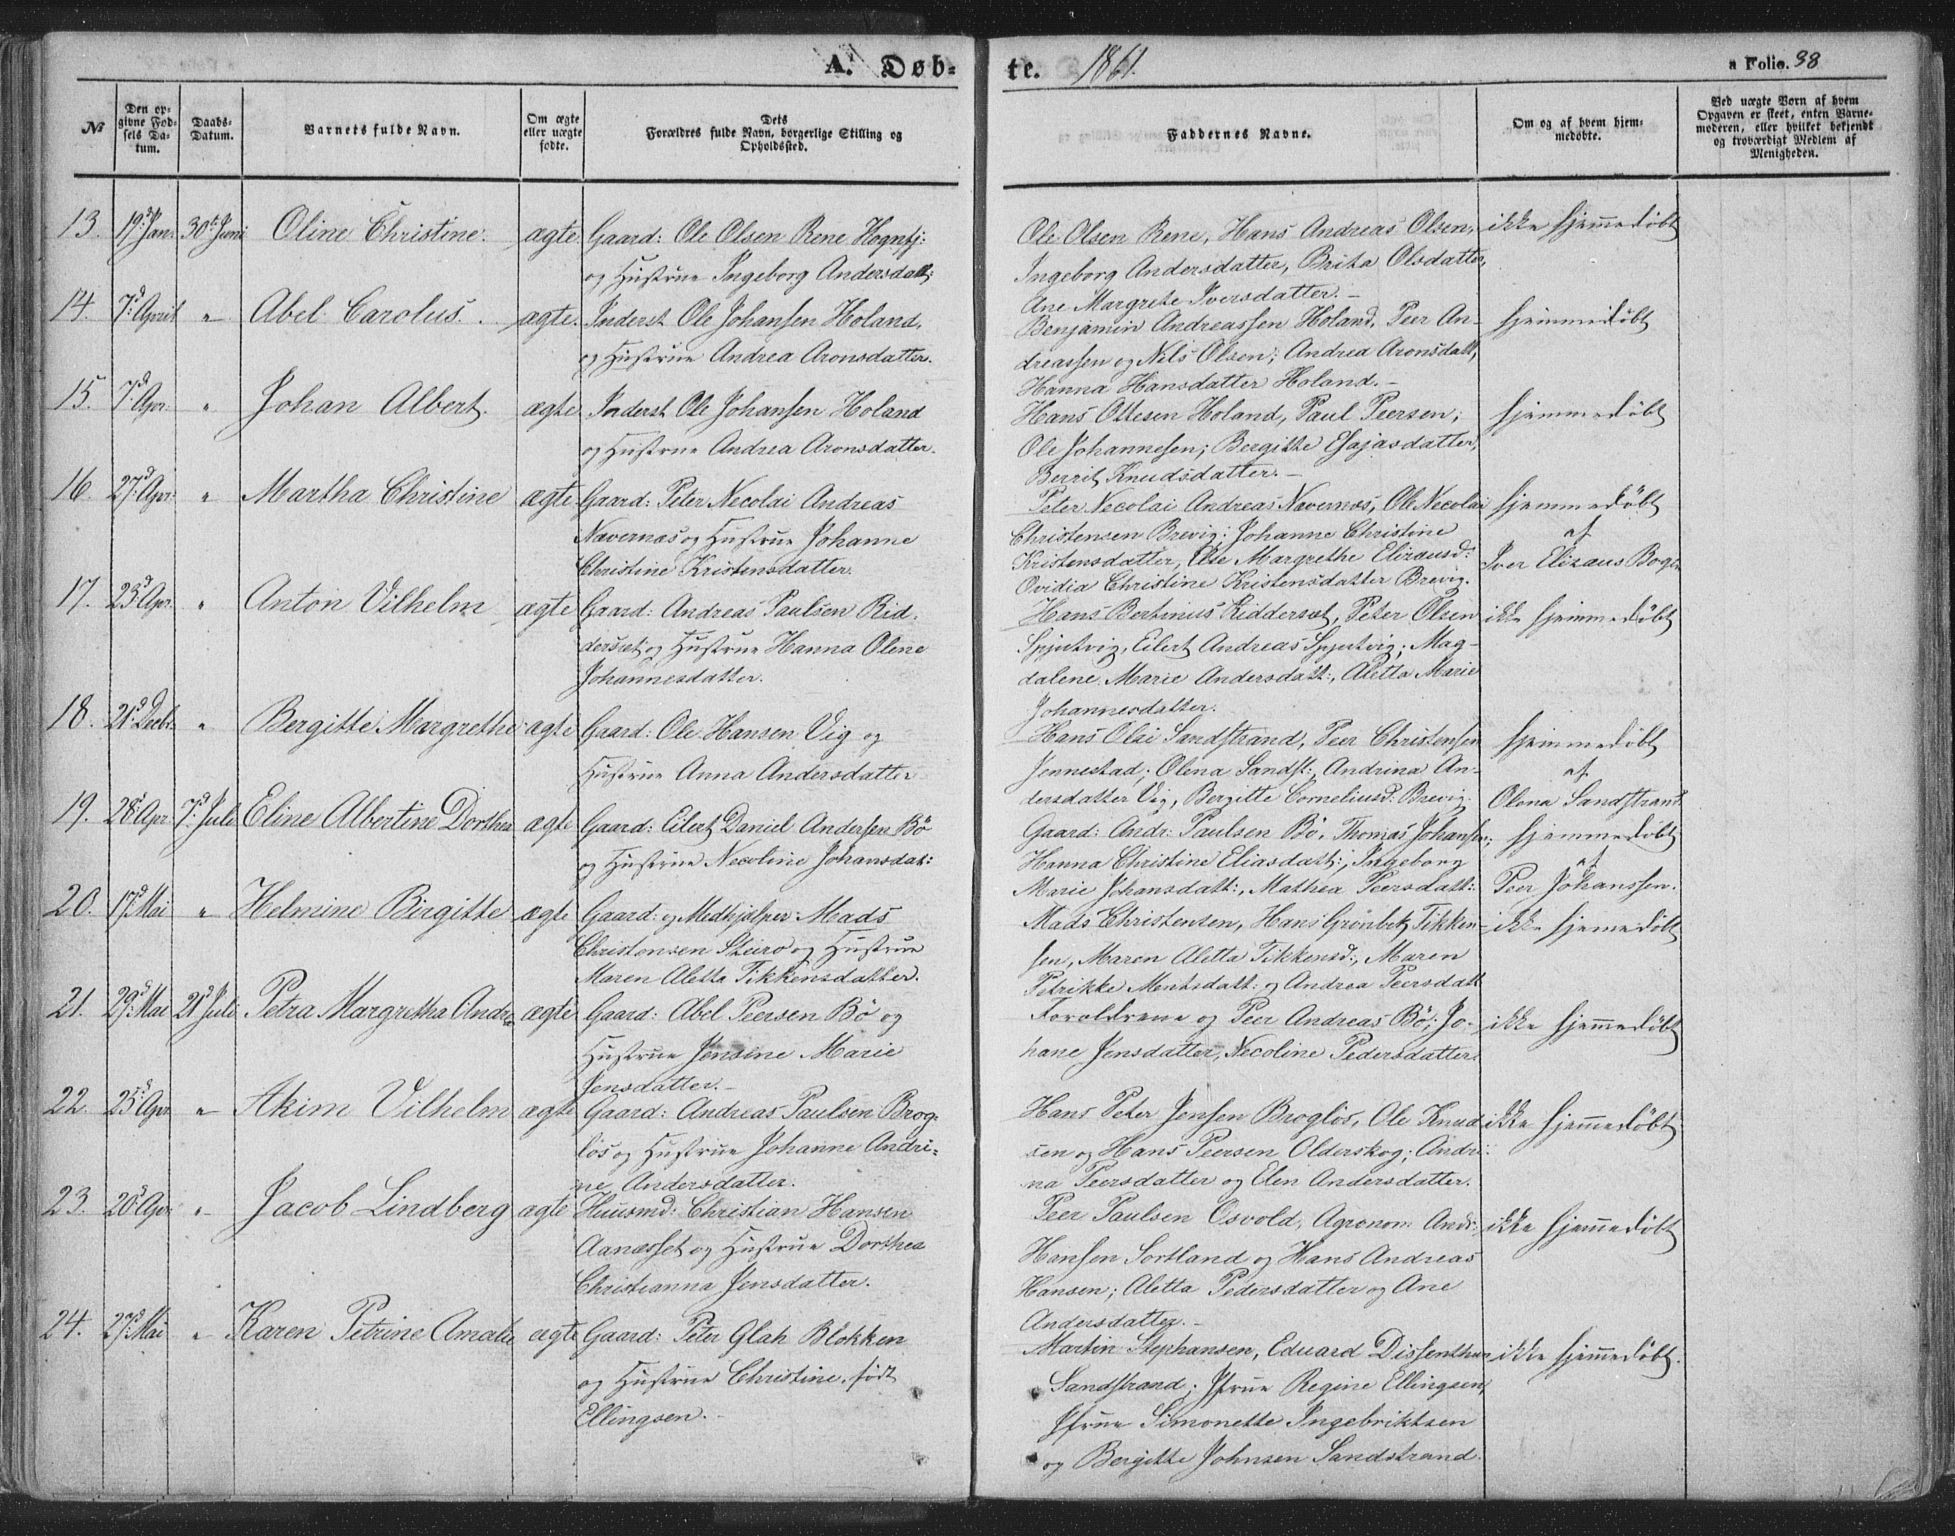 A. Døb- te. 1861. a Folio. 38
№
Den op-
givne Fød-
sels Da-
tum.
Daabs-
Datum.
Barnets fulde Navn.
Om ægte
eller uægte
fødte.
Dets
Forældres fulde Navn, borgerlige Stilling og
Opholdssted.
Faddernes Navne.
Om og af hvem hjem-
medøbte.
Ved uægte Børn af hvem
Opgaven er skeet, enten Barne-
moderen, eller hvilket bekjendt
og troværdigt Medlem af
Menigheden.
13. 19d Jan. 30te Juni Oline Christine. ægte Gaard: Ole Olsen Rene Hognfj:
og Hustrue Ingeborg Andersdatt:
Ole Olsen Rene, Hans Andreas Olsen, ikke hjemmedøbt
Ingeborg Andersdatter, Brita Olsdatter,
Ane Margrete Iversdatter. –
14. 7d April „ Abel Carolus. ægte. Inderst Ole Johansen Holand.
og Hustrue Andrea Aronsdatter.
Benjamin Andreassen Holand, Peer An- hjemmedøbt
dreassen og Nils Olsen; Andrea Aronsdatt,
Hanna Hansdatter Holand. –
15. 7d Apr. „ Johan Albert. ægte Inderst Ole Johansen Holand
og Hustrue Andrea Aronsdatter.
Hans Ottesen Holand, Paul Peersen; hjemmedøbt
Ole Johannesen; Bergitte Esajasdatter,
Berrit Knudsdatter. –
16. 27d Apr: „ Martha Christine ægte Gaard: Peter Necolai Andreas
Navernæs og Hustrue Johanne
Christine Kristensdatter.
Peter Necolai Andreas Navernæs, Ole Necolai hjemmedøbt
Christensen Brevig; Johanne Christine af
Kristensdatter, Else Margrethe Elizeusd: Iver Elizæus Bogen
Ovidia Christine Kristensdatter Brevig.
17. 23d Apr. „ Anton Vilhelm ægte Gaard: Andreas Paulsen Rid-
derset og Hustrue Hanna Olene
Johannesdatter.
Hans Bertinus Ridderset, Peter Olsen ikke hjemmedøbt
Spjutvig, Eilert Andreas Spjutvig; Mag-
dalene Marie Andersdatt:, Aletta Marie
Johannesdatter.
18. 21d Decbr „ Bergitte Margrethe ægte Gaard: Ole Hansen Vig og
Hustrue Anna Andersdatter
Hans Olai Sandstrand, Peer Christensen hjemmedøbt
Jennestad; Olena Sandst:, Andrina An- af
dersdatter Vig, Bergitte Corneliusd: Brevig. Olena Sandstrand
19. 28d Apr 7d Juli Eline Albertine Dorthea ægte Gaard: Eilert Daniel Andersen Bö
og Hustrue Necoline Johansdat:
Gaard: Andr: Paulsen Bö, Thomas Johansen; hjemmedøbt
Hanna Christine Eliasdatt:, Ingeborg af
Marie Johansdatt:, Mathea Peersdatt: Peer Johanssen.
20. 17d Mai „ Helmine Birgitte ægte Gaard: og Medhjælper Mads
Christensen Steiro og Hustrue
Maren Aletta Tikkensdatter.
Mads Christensen, Hans Grönbek Tikken- ikke hjemedøbt
sen, Maren Aletta Tikkensd:, Maren
Petrikke Mentsdatt: og Andrea Peersdatt
21. 29d Mai 21d Juli Petra Margretha Andrea ægte Gaard: Abel Peersen Bö og
Hustrue Jensine Marie
Jensdatter. –
Forældrene og Peer Andreas Bö; Jo- ikke hjemmedøbt
hane Jensdatter, Necoline Pedersdatter.
22. 25d Apr „ Akim Vilhelm ægte Gaard: Andreas Paulsen Brog-
lös og Hustrue Johanne Andri-
ne Andersdatter.
Hans Peter Jensen Broglös, Ole Knud ikke hjemmedøbt
sen og Hans Peersen Olderskog; Andri
na Peersdatter og Elen Andersdatter.
23. 20d Apr. „ Jacob Lindberg ægte Huusmd: Christian Hansen
Aanæsset og Hustrue Dorthea
Christianna Jensdatter.
Peer Paulsen Osvold, Agronom Andr: ikke hjemmedøbt
Hansen Sortland og Hans Andreas
Hansen; Aletta Pedersdatter og Ane
Andersdatter. –
24. 27d Mai „ Karen Petrine Amalie ægte Gaard: Peter Glah Blokken
og Hustrue Christine, født
Ellingsen. –
Martin Stephansen, Eduard Dissenthun ikke hjemmedøbt.
Sandstrand; Jfrue Regine Ellingsen,
Jfrue Simonette Ingebriktsen
og Bergitte Johnsen Sandstrand.